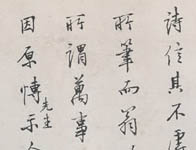 詩信其不
所筆而翁
所謂萬事
因原博先生示